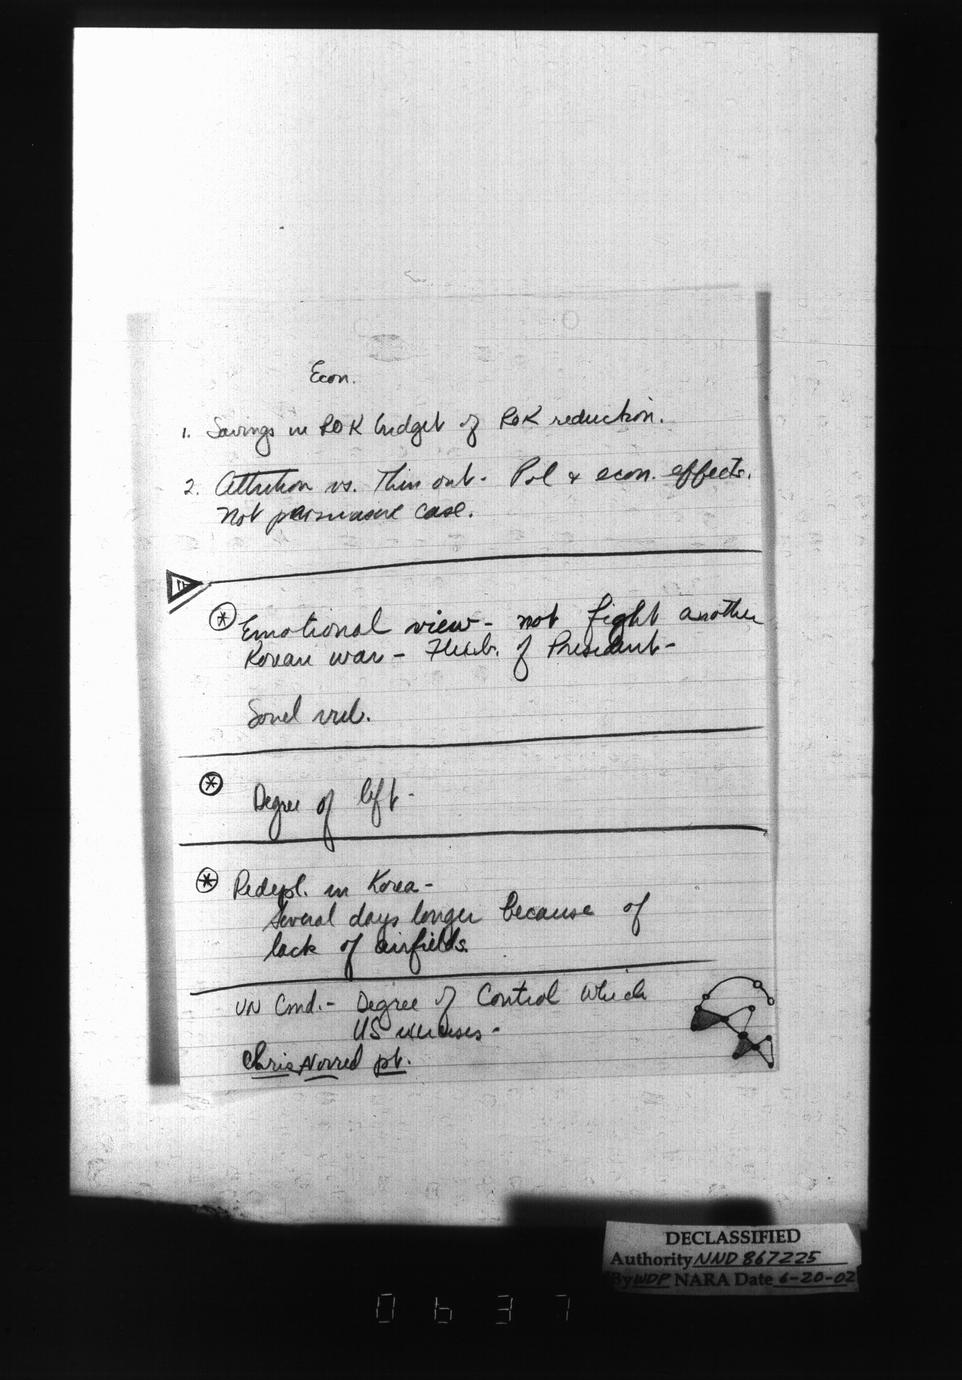 Econ.
1. Savings in ROK budget of ROK reduction.
2. Attrition vs. Thin out - Pol & econ. effects.
Not persuasive case.
* Emotional view - not fight another
Korean war - Flexib. of President -
* Degree of lift -
* Redepl. in Korea -
Several days longer because of
lack of airfields.
UN Cmd. - Degree of Control Which
US exercises -
Chris Norred pt.
DECLASSIFIED
Authority NND 867225
By WDP NARA Date 6-20-02
0637